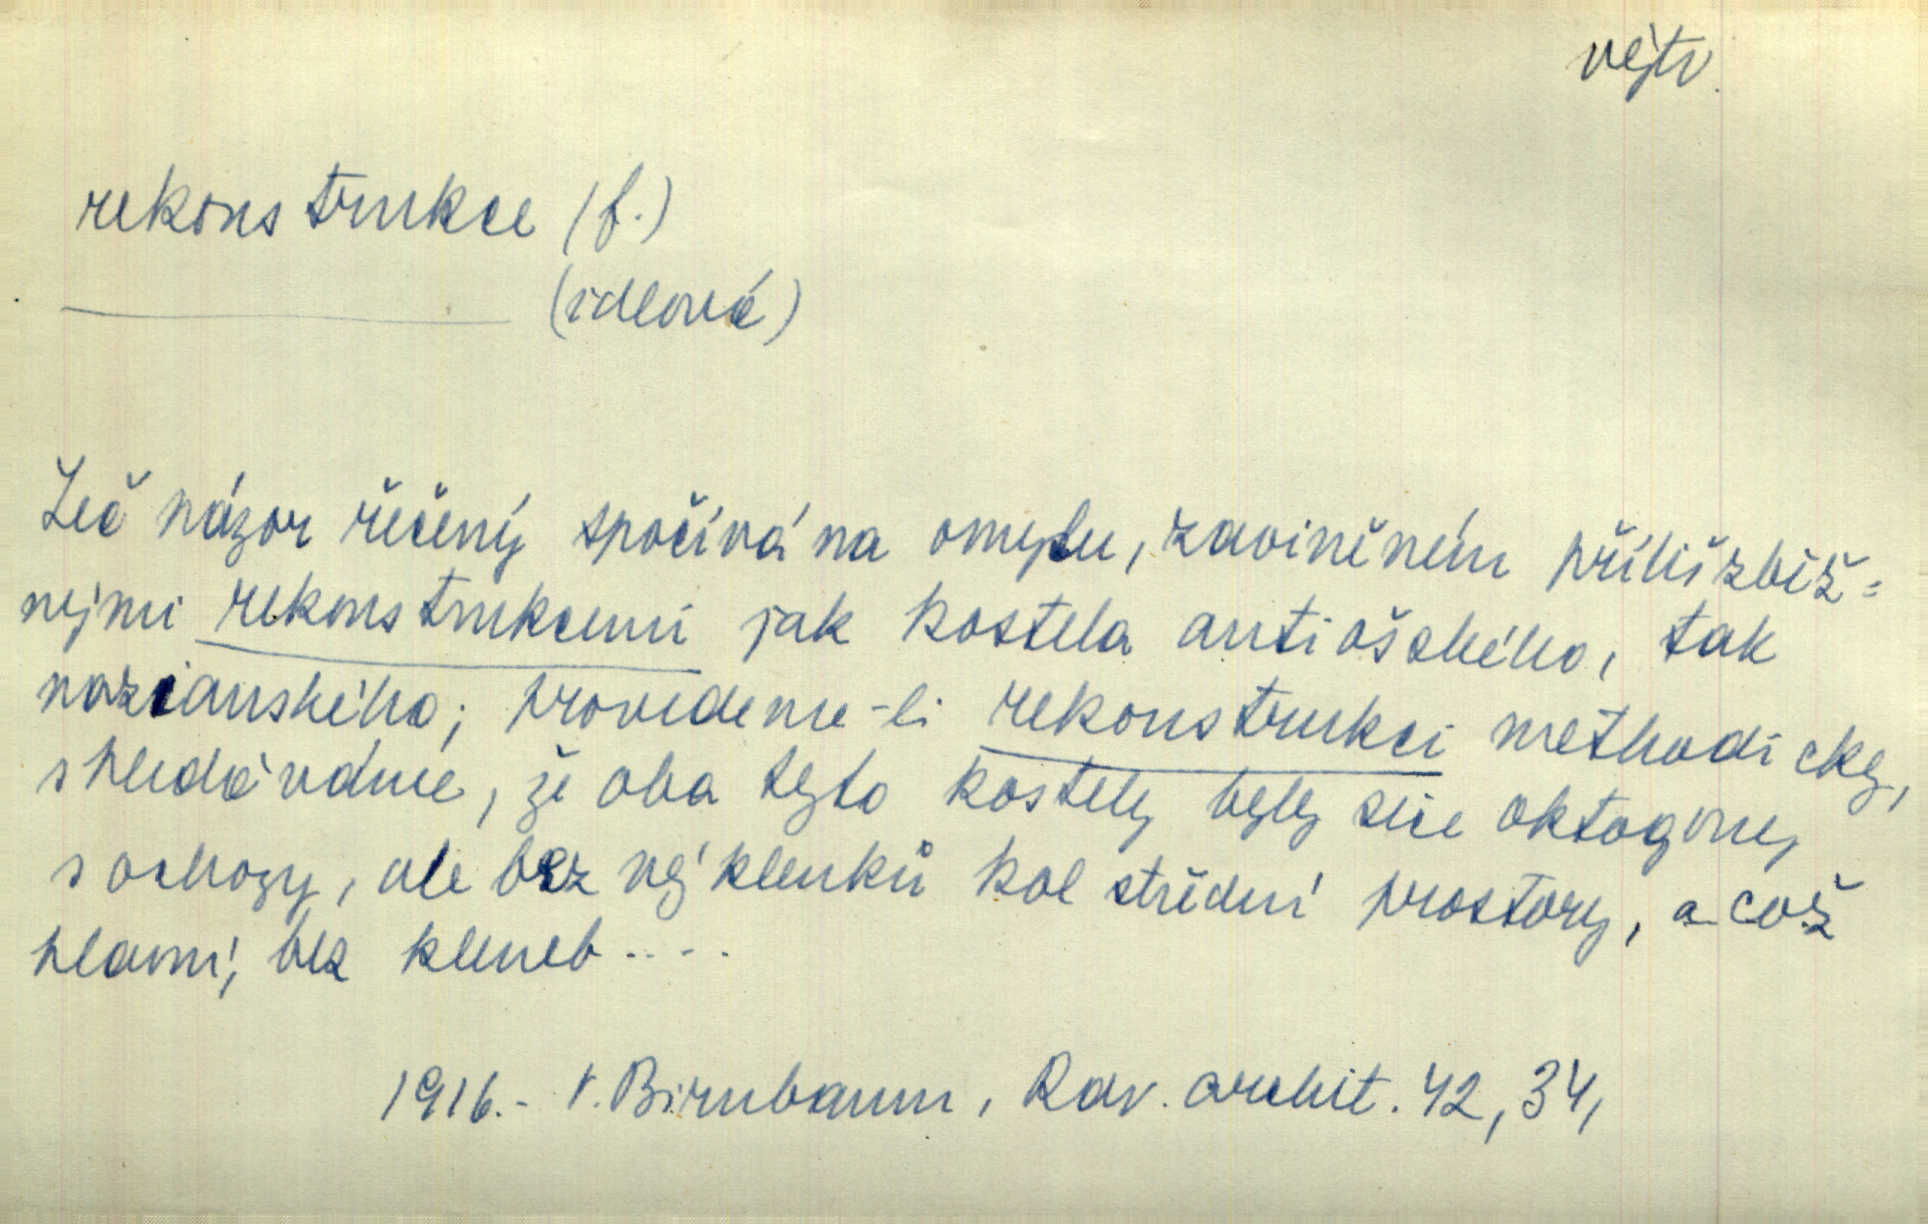 výtv.
rekonstrukce (f.)
(ideová)
Leč názor řečený spočívá na omylu, zaviněném příliš zběž=
nými rekonstrukcemi jak kostela antiošského, tak
nazianského; provedeme-li rekonstrukci methodicky,
shledáváme, že oba tyto kostely byly sice oktogony
s ochozy, ale bez výklenků kol střední prostory, a což
hlavní, bez kleneb....
1916.- V. Birnbaum, Rav. archit. 42, 34,